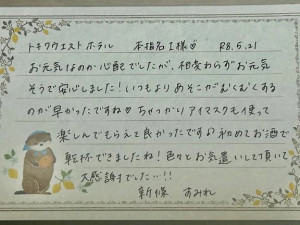 トキワウエスト ホテル 本指名I様♡ R8.5.21
お元気なのか心配でしたが、相変わらずお元気
そうで安心しました!いつもよりあそこがむくむくする
のが早かったですね♡ちゃっかりアイマスクも使って
楽しんでもらえて良かったです♪初めてお酒で
乾杯できましたね!色々とお気遣いして頂いて
大感謝でした…!!
新條 すみれ